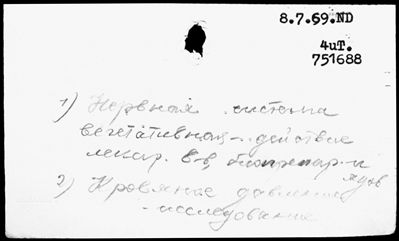 8.7.69.ND
4uT.
751688
1) Нервная система
вегетативная - действие
лекар. в-в, биопрепар-
2) Кровяное давление
- исследование